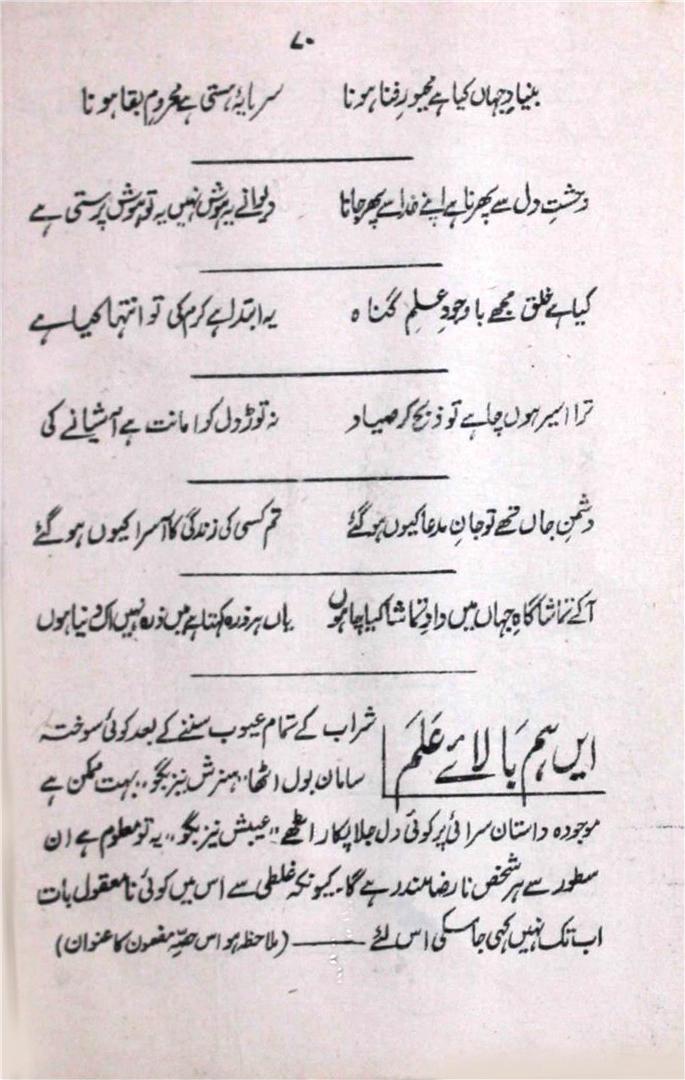 ۷۰
بنیادِ جہاں کیا ہے مجبورِ فنا ہونا سرمایۂ ہستی ہے محرومِ بقا ہونا
وحشتِ دل سے پھرنا ہے اپنے خدا سے پھر جانا دیوانے یہ ہوش نہیں یہ تو ہوش پرستی ہے
کیا ہے خلق مجھے باوجودِ علمِ گناہ یہ ابتدا ہے کرم کی تو انتہا کیا ہے
ترا اسیر ہوں چاہے تو ذبح کر صیاد نہ توڑ دل کو امانت ہے آشیانے کی
دشمنِ جاں تھے تو جانِ مدعا کیوں ہو گئے تم کسی کی زندگی کا آسرا کیوں ہو گئے
آکے تماشا گاہِ جہاں میں دادِ تماشا کیا چاہوں یاں ہر ذرہ کہتا ہے میں ذرہ نہیں اک دنیا ہوں
ایں ہم بالائے عَلَم
شراب کے تمام عیوب سننے کے بعد کوئی سوختہ
سامان بول اٹھا “ہنرش نیز بگو” بہت ممکن ہے
موجودہ داستان سرائی پر کوئی دل جلا پکار اٹھے “عیبش نیز بگو” یہ تو معلوم ہے ان
سطور سے ہر شخص نارضامند رہے گا۔ کیونکہ غلطی سے اس میں کوئی نامعقول بات
اب تک نہیں کہی جا سکی اس لئے ——— (ملاحظہ ہو اس حصّہ مضمون کا عنوان)